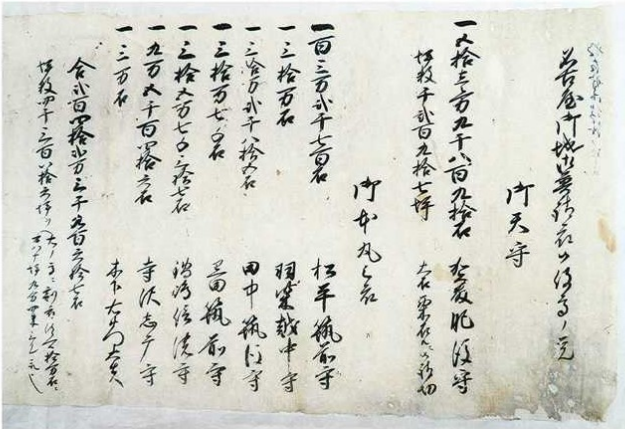 名古屋御城御普請衆御役高ノ覚
御天守
一 五拾三万九千八百九拾石 加藤肥後守
坪数千弐百九拾七坪 大石栗石
御本丸之衆
一 百三万弐千七百石 松平筑前守
一 三拾万石 羽柴越中守
一 三拾万弐千八拾五石 田中筑後守
一 三拾万七千石 黒田筑前守
一 三拾五万七千三拾七石 鍋嶋信濃守
一 九万五千百四拾六石 寺沢志广守
一 三万石 木下右衛門大夫
合弐百四拾弐万三千九百六拾七石
坪数四千三百八拾六坪